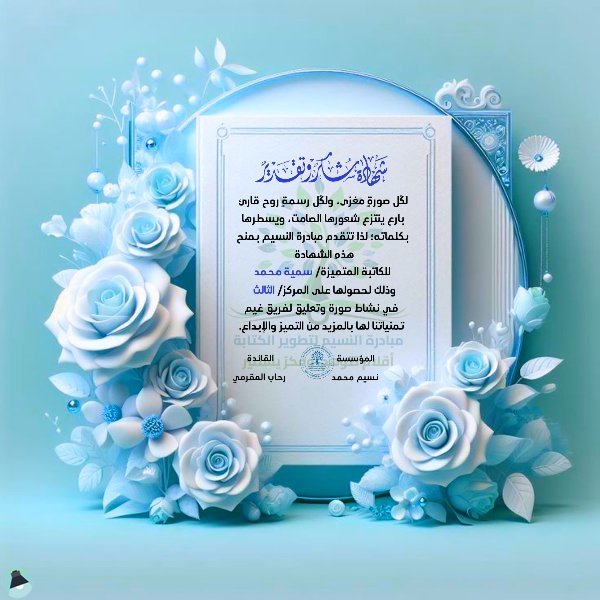 شهادة شكر وتقدير
لكل صورةٍ مغزى، ولكل رسمة روح قارئ
بارع ينتزع شعورها الصامت، ويسطرها
بكلماته؛ لذا تتقدم مبادرة النسيم بمنح
هذه الشهادة
للكاتبة المتميزة/ سمية محمد
وذلك لحصولها على المركز/ الثالث
في نشاط صورة وتعليق لفريق غيم
تمنياتنا لها بالمزيد من التميز والإبداع.
مبادرة النسيم لتطوير الكتابة
المؤسسة القائدة
نسيم محمد رحاب المقرمي